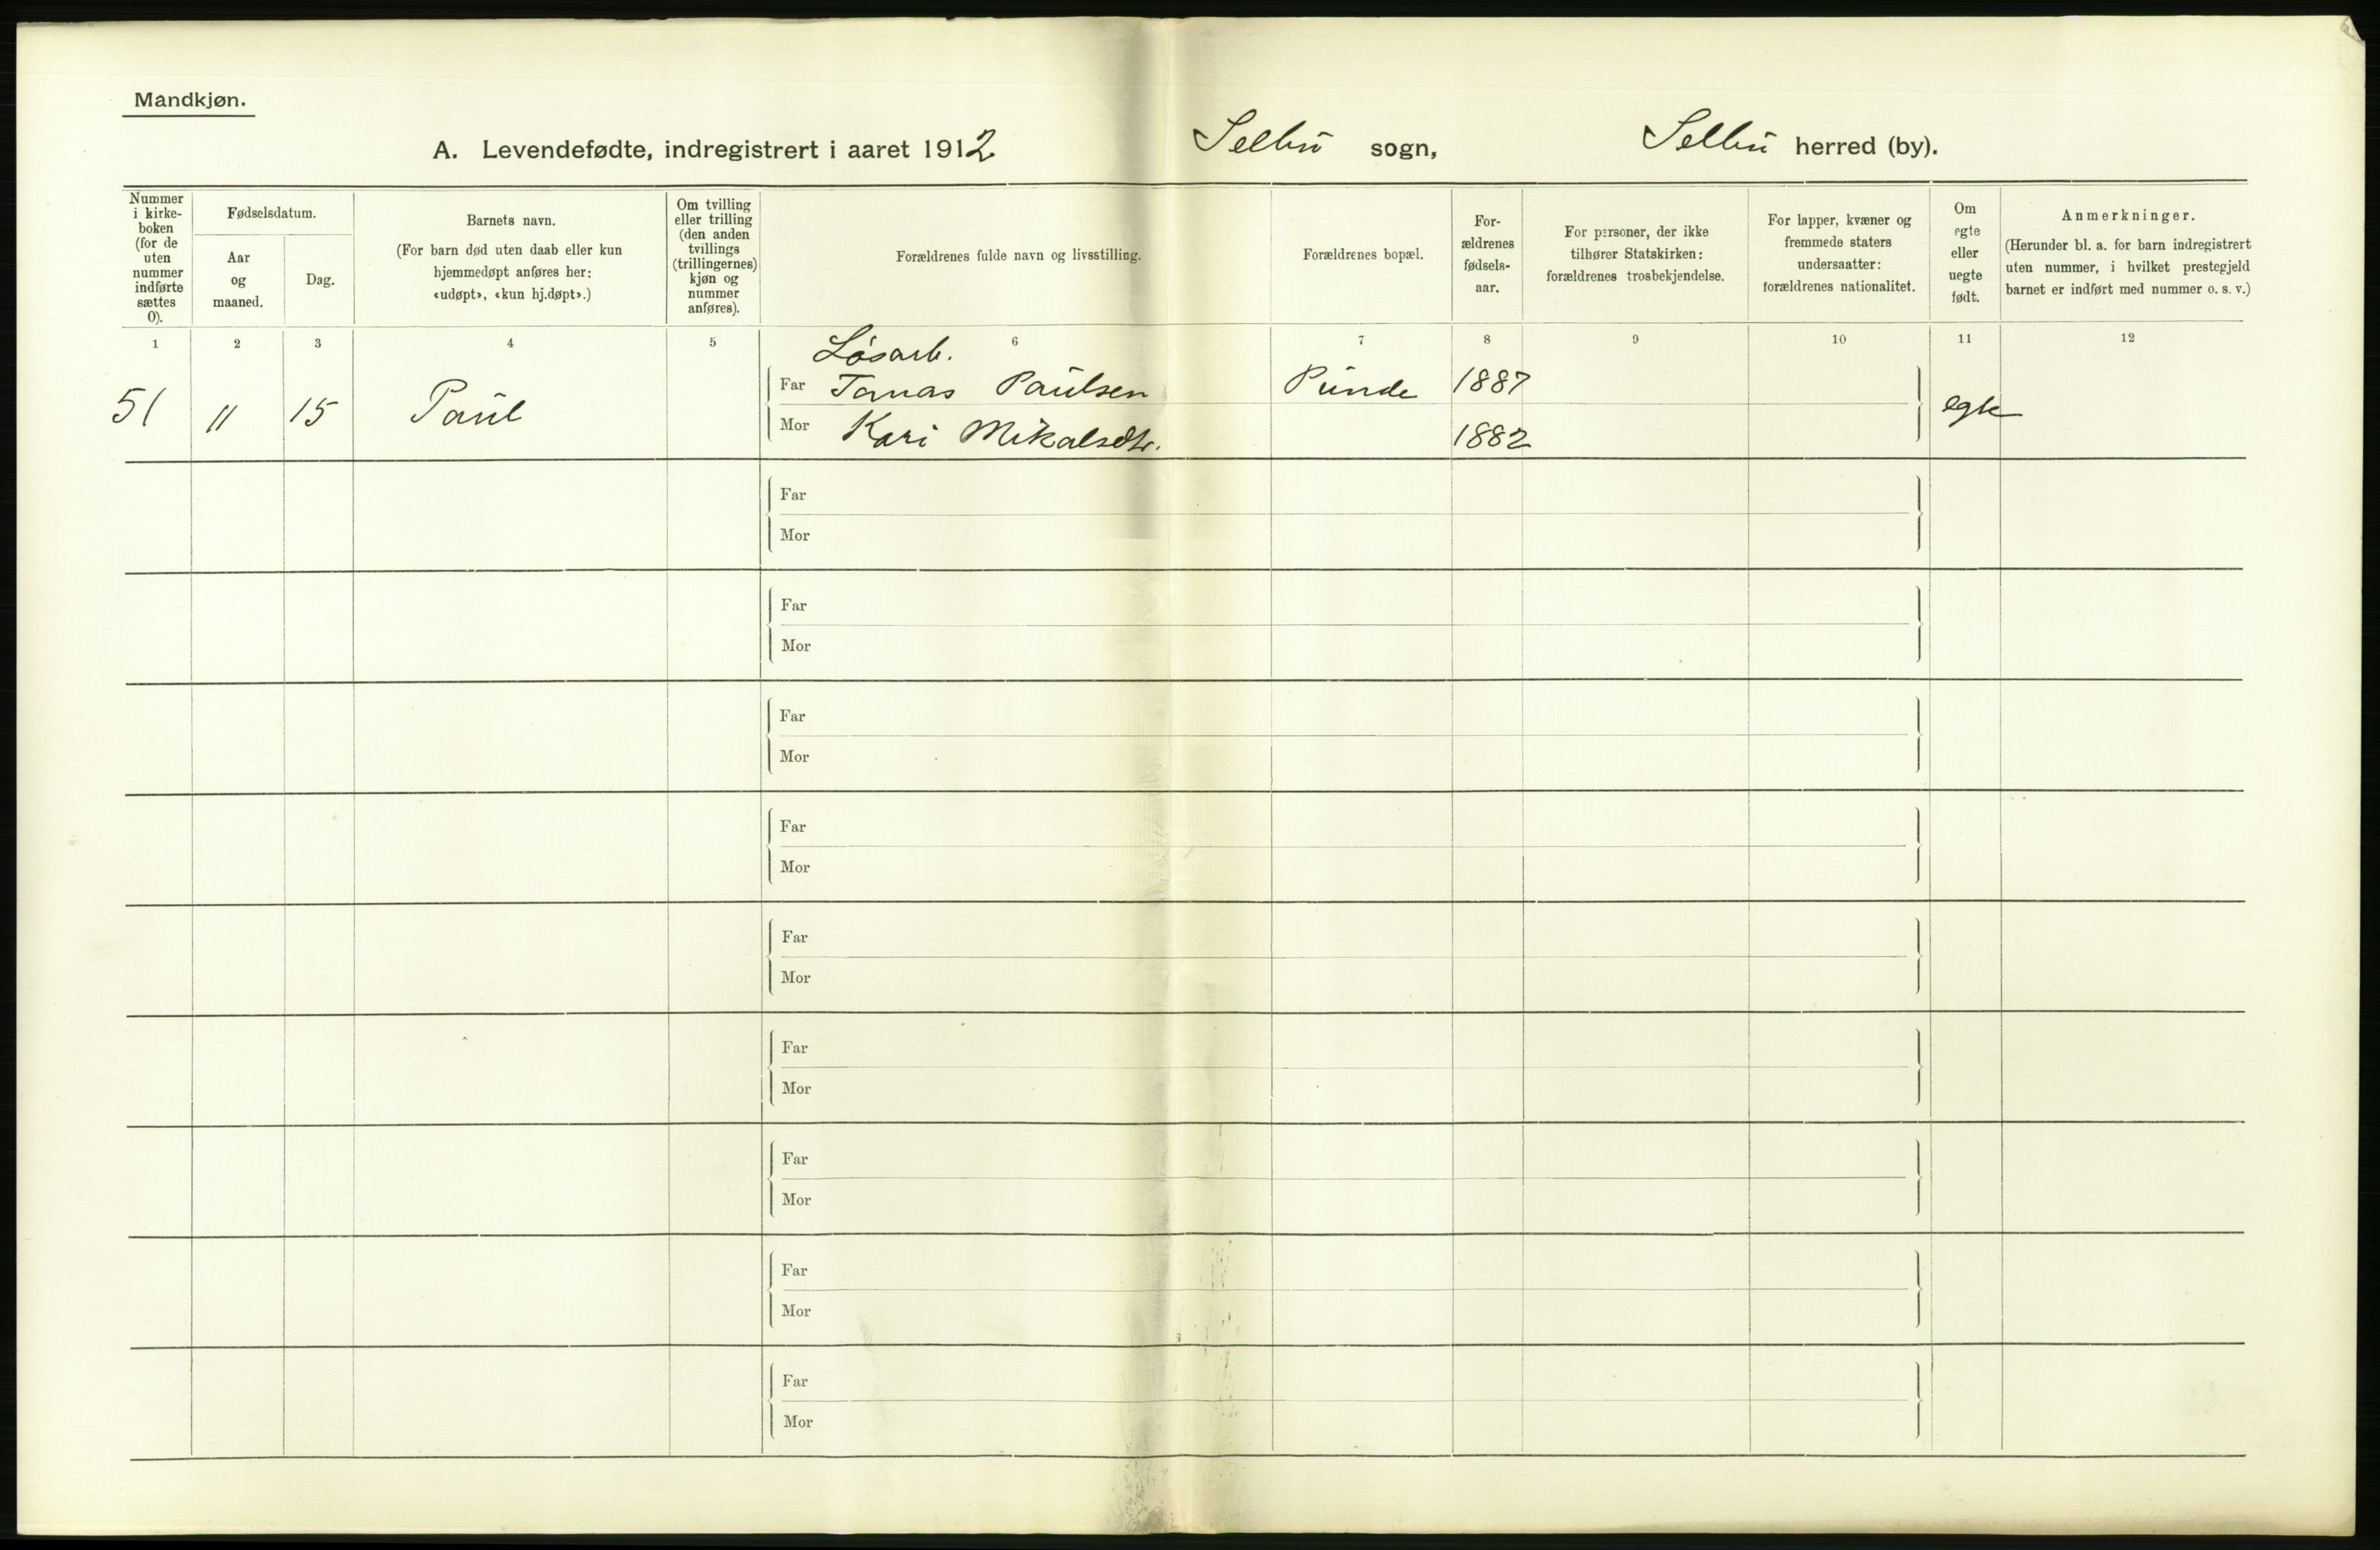 Mandkjøn.
A. Levendefødte, indregistrert i aaret 1912 Selbu sogn, Selbu herred (by).
Nummer i kirke-boken (for de uten nummer indførte sættes 0).
Fødselsdatum.
Aar og maaned.
Dag.
Barnets navn.
(For barn død uten daab eller kun
hjemmedøpt anføres her:
«udøpt», «kun hj.døpt».)
Om tvilling
eller trilling
(den anden
tvillings
(trillingernes)
kjøn og
nummer
anføres).
Forældrenes fulde navn og livsstilling.
Forældrenes bopæl.
For-
ældrenes
fødsels-
aar.
For personer, der ikke
tilhører Statskirken:
forældrenes trosbekjendelse.
For lapper, kvæner og
fremmede staters
undersaatter:
forældrenes nationalitet.
Om
egte
eller
uegte
født.
Anmerkninger.
(Herunder bl. a. for barn indregistrert
uten nummer, i hvilket prestegjeld
barnet er indført med nummer o. s. v.)
1 2 3 4 5 6 7 8 9 10 11 12
Løsarb.
Far Tomas Paulsen Punde 1887
51 11 15 Paul egte
Mor Kari Mikalsdtr. 1882
Far
Mor
Far
Mor
Far
Mor
Far
Mor
Far
Mor
Far
Mor
Far
Mor
Far
Mor
Far
Mor